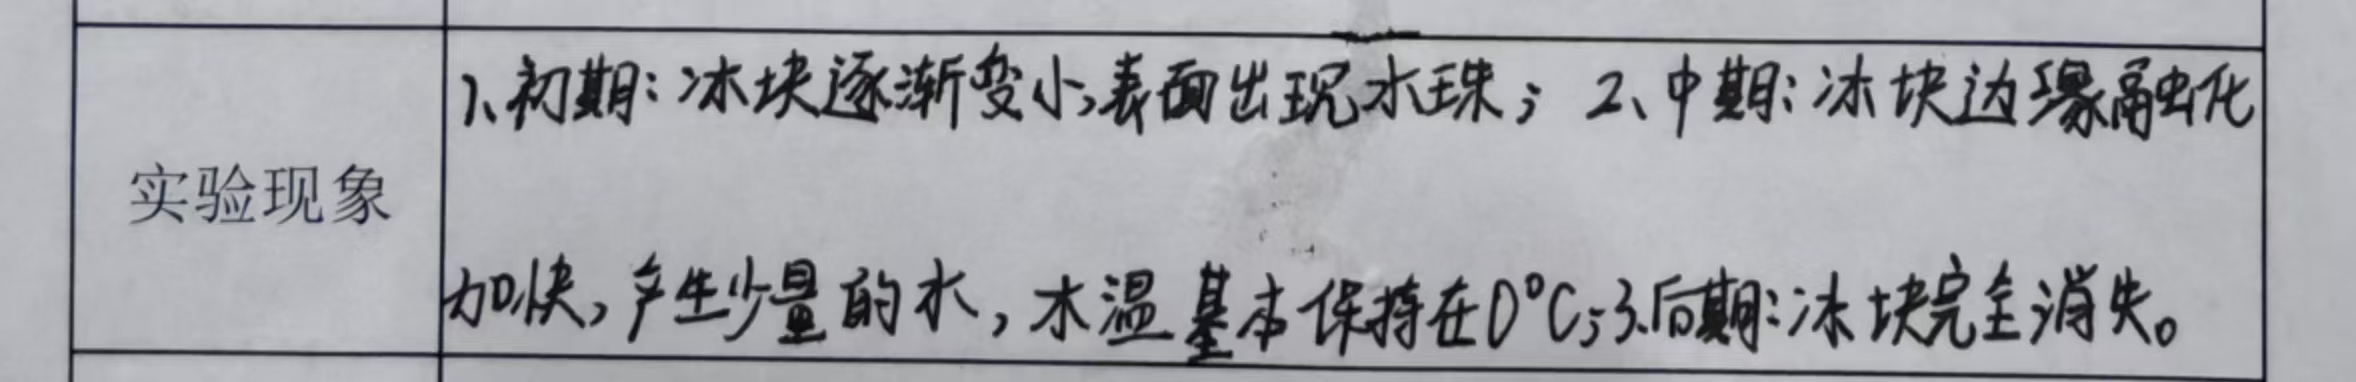 1、初期：冰块逐渐变小，表面出现水珠；2、中期：冰块边缘融化
实验现象
加快，产生少量的水，水温基本保持在0°C；3.后期：冰块完全消失。